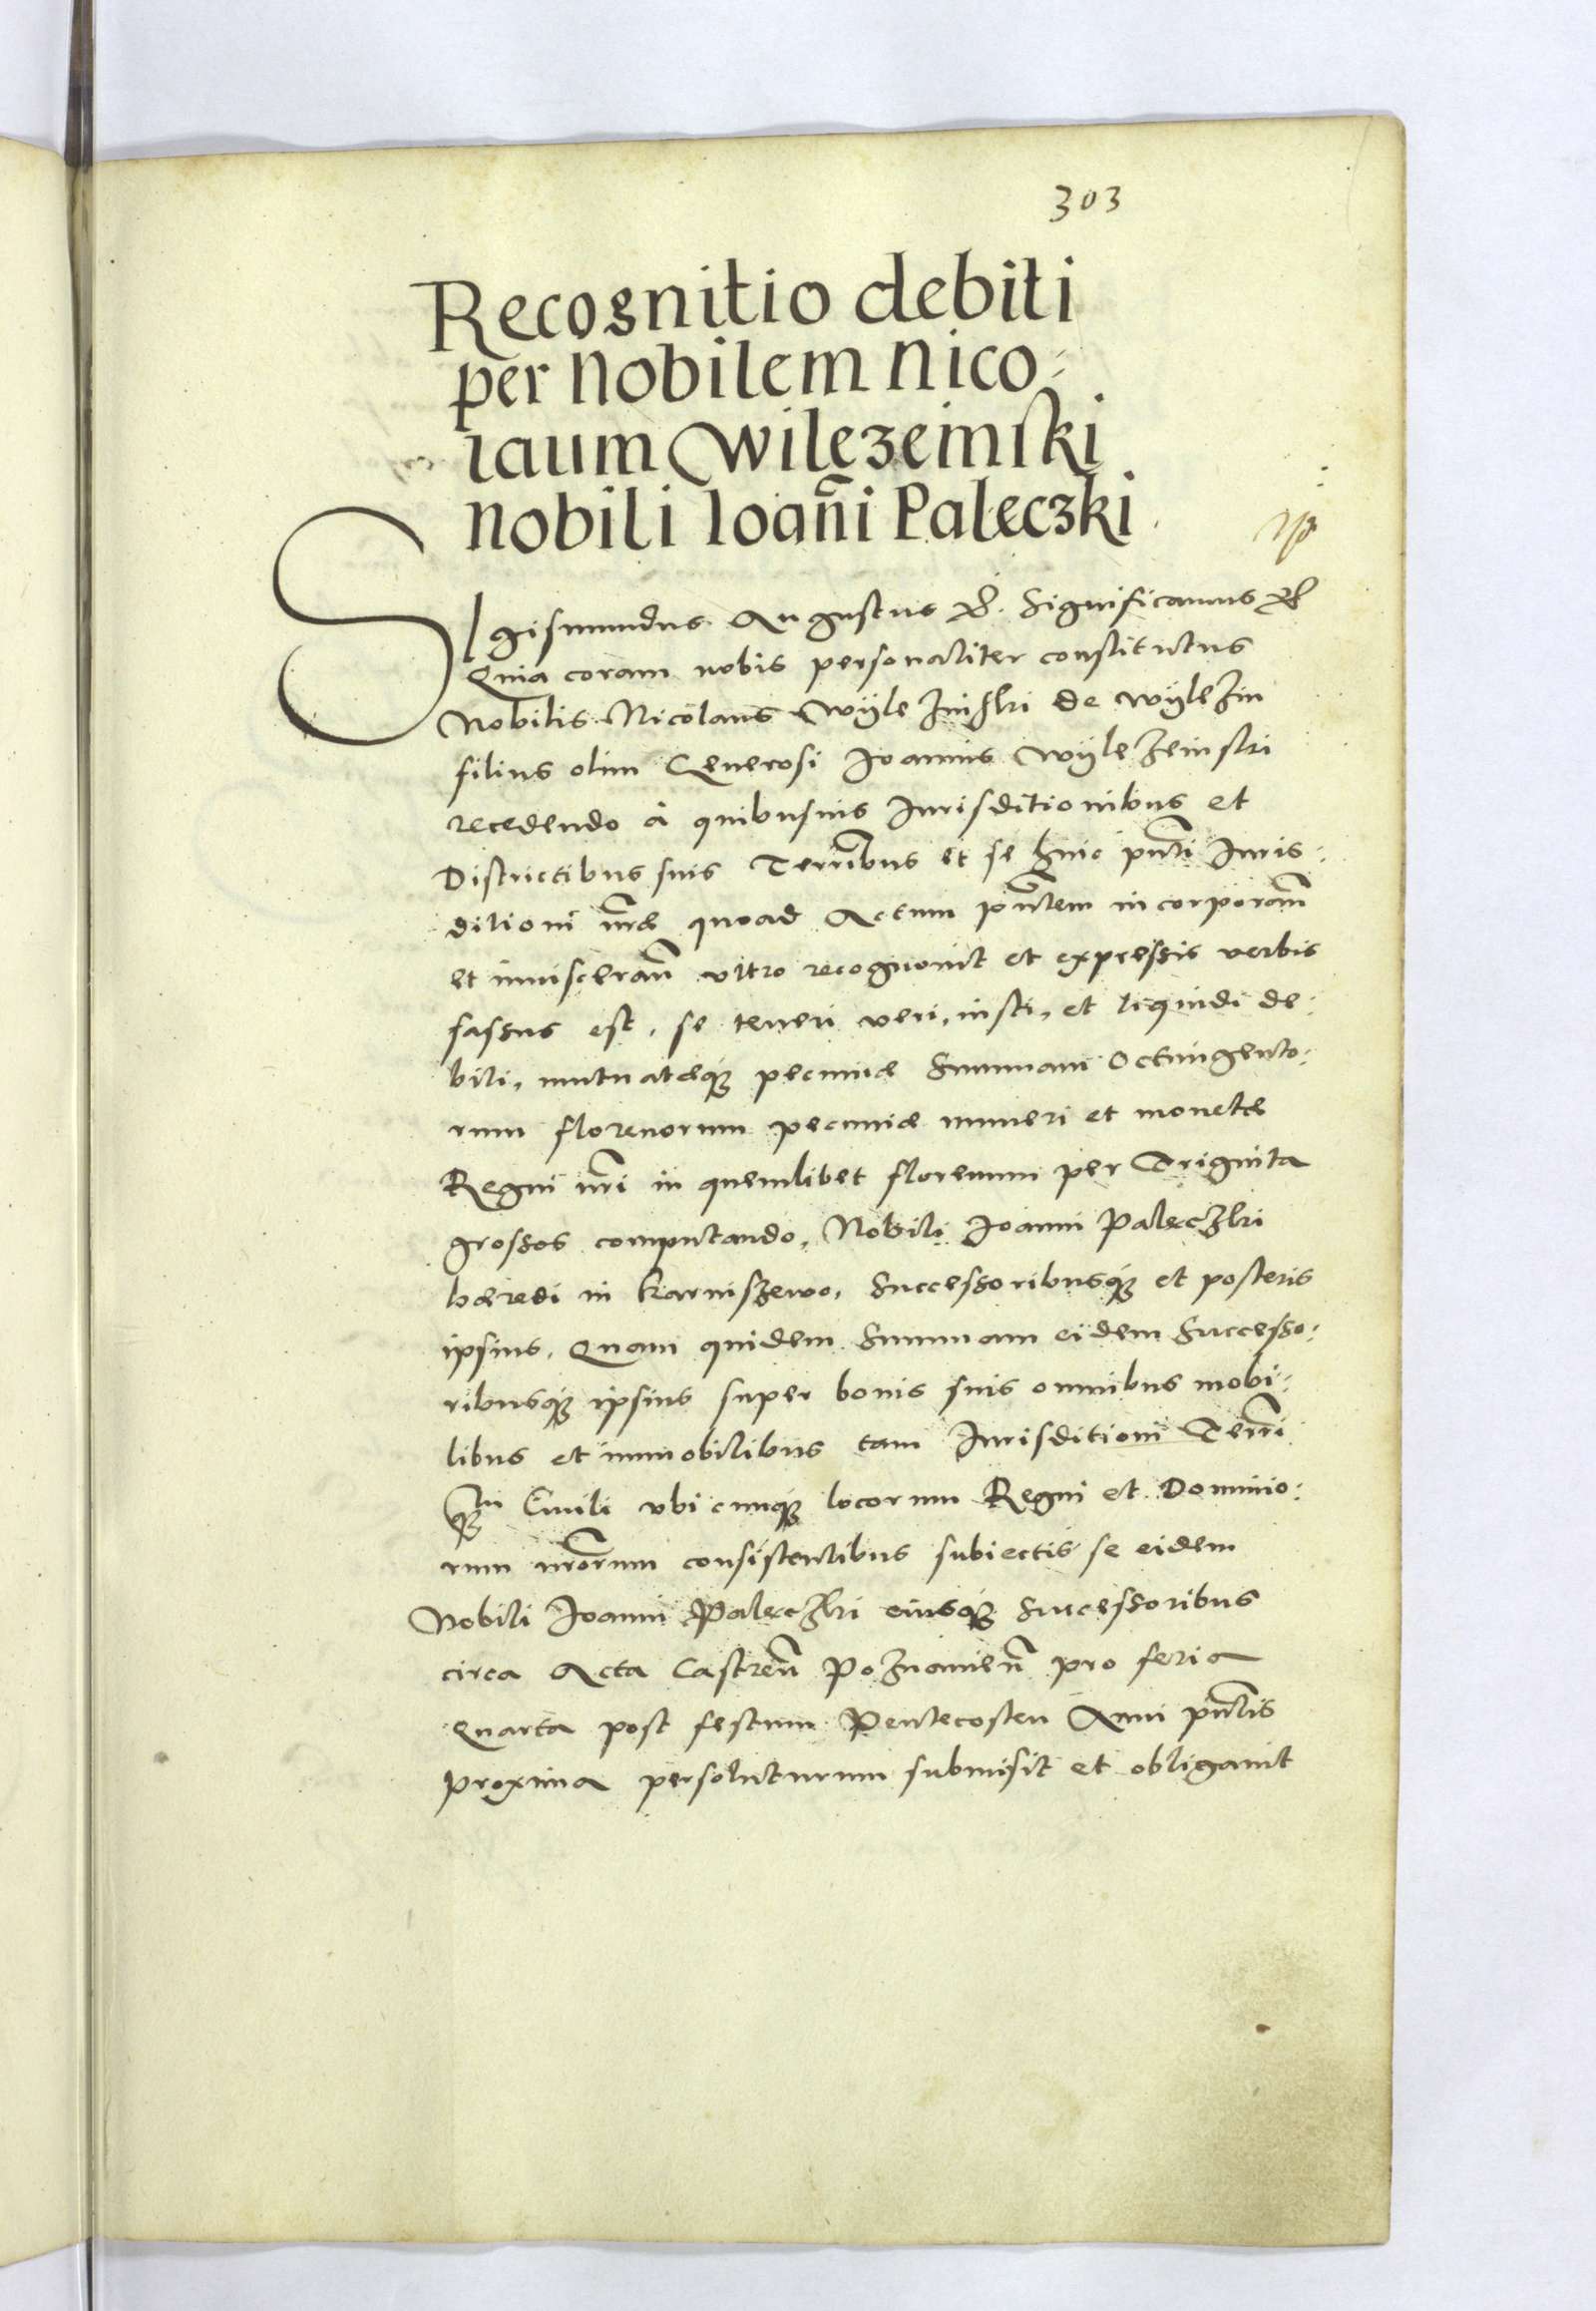 303
Recognitio debiti
per Nobilem Nico-
laum Wilczeinski
nobili Ioan̄i Paleczki.
Sigismundus Augustus &. Significamus &
Quia coram nobis personaliter constitutus
Nobilis Nicolaus Wyleżinski de Wyleżin
filius olim Generosi Ioannis Wyleżeinski
recedendo à quibusuis Iurisditionibus et
Districtibus suis Terrībus et se huic pn̄ti Iuris:
ditioni nr̄æ quoad Actum pn̄tem incorporan̄
et inuisceran̄ vltro recognouit et expressis verbis
fassus est, se teneri veri, iusti, et liquidi de:
biti, mutuatæq; pecuniæ Summam Octuingento:
rum florenorum pecuniæ numeri et monetæ
Regni nr̄i in quemlibet florenum per Triginta
grossos computando, Nobili Ioanni Paleczki
hæredi in Karniszewo, Successoribusq; et posteris
ipsius, Quam quidem Summam eidem Successo:
ribusq; ipsius super bonis suis omnibus mobi:
libus et immobilibus tam Iurisditioni Terrī
q̄m Ciuili vbicunq; locorum Regni et Dominio:
rum nr̄orum consistentibus subiectis se eidem
Nobili Ioanni Paleczki eiusq; Successoribus
circa Acta Castren̄ Poznanien̄ pro feria
Quarta post festum Pentecosten Anni pn̄tis
proxima persoluturum submisit et obligauit